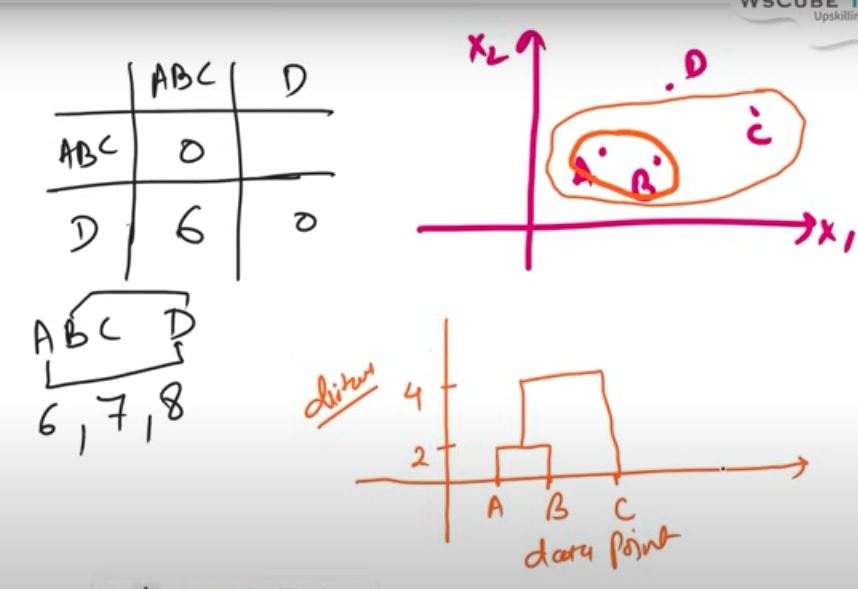 WSCUBE
Upskillin
ABC D
ABC 0
D 6 0
A B C D
6, 7, 8
X2
D
C
A
B
X1
4
2
A B C
data point